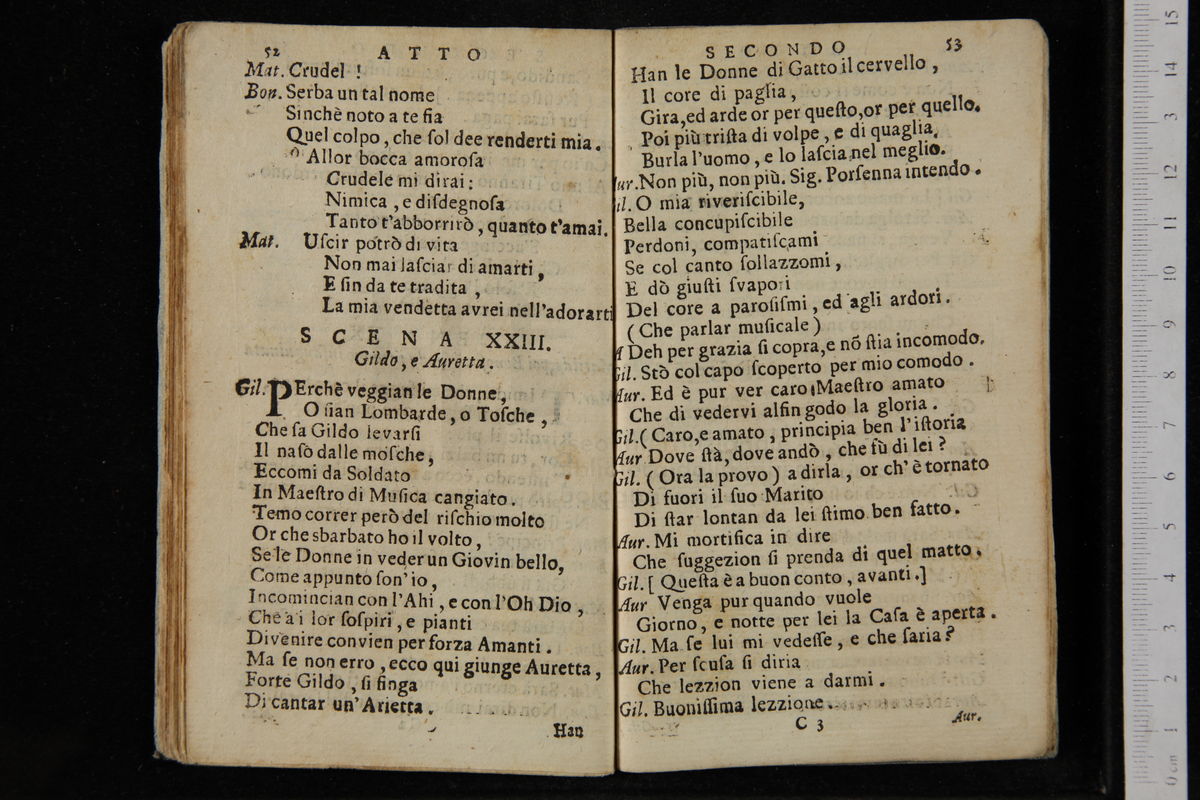 52 ATTO
Mat. Crudel !
Bon. Serba un tal nome
Sinchè noto a te ſia
Quel colpo, che ſol dee renderti mia.
Allor bocca amoroſa
Crudele mi dirai:
Nimica, e diſdegnoſa
Tanto t'abborrirò, quanto t'amai.
Mat. Uſcir potrò di vita
Non mai laſciar di amarti,
E ſin da te tradita,
La mia vendetta avrei nell'adorarti
SCENA XXIII.
Gildo, e Auretta.
Gil. PErchè veggian le Donne,
O ſian Lombarde, o Toſche,
Che ſa Gildo levarſi
Il naſo dalle moſche,
Eccomi da Soldato
In Maeſtro di Muſica cangiato.
Temo correr però del riſchio molto
Or che sbarbato ho il volto,
Se le Donne in veder un Giovin bello,
Come appunto ſon' io,
Incomincian con l'Ahi, e con l'Oh Dio,
Che a i lor ſoſpiri, e pianti
Divenire convien per forza Amanti.
Ma ſe non erro, ecco qui giunge Auretta,
Forte Gildo, ſi finga
Di cantar un' Arietta.
Han
SECONDO 53
Han le Donne di Gatto il cervello,
Il core di paglia,
Gira, ed arde or per queſto, or per quello.
Poi più triſta di volpe, e di quaglia,
Burla l'uomo, e lo laſcia nel meglio.
ur. Non più, non più. Sig. Porſenna intendo.
il. O mia riveriſcibile,
Bella concupiſcibile
Perdoni, compatiſcami
Se col canto ſollazzomi,
E dò giuſti ſvapori
Del core a paroſiſmi, ed agli ardori.
(Che parlar muſicale)
A Deh per grazia ſi copra, e nō ſtia incomodo.
Gil. Stò col capo ſcoperto per mio comodo.
Aur. Ed è pur ver caro Maeſtro amato
Che di vedervi alfin godo la gloria.
Gil. (Caro, e amato, principia ben l'iſtoria
Aur Dove ſtà, dove andò, che fù di lei?
Gil. (Ora la provo) a dirla, or ch' è tornato
Di fuori il ſuo Marito
Di ſtar lontan da lei ſtimo ben fatto.
Aur. Mi mortifica in dire
Che ſuggezion ſi prenda di quel matto.
Gil. [Queſta è a buon conto, avanti.]
Aur Venga pur quando vuole
Giorno, e notte per lei la Caſa è aperta.
Gil. Ma ſe lui mi vedeſſe, e che ſaria?
Aur. Per ſcuſa ſi diria
Che lezzion viene a darmi.
Gil. Buoniſſima lezzione.
C 3 Aur.
0 cm 1 2 3 4 5 6 7 8 9 10 11 12 3 14 15